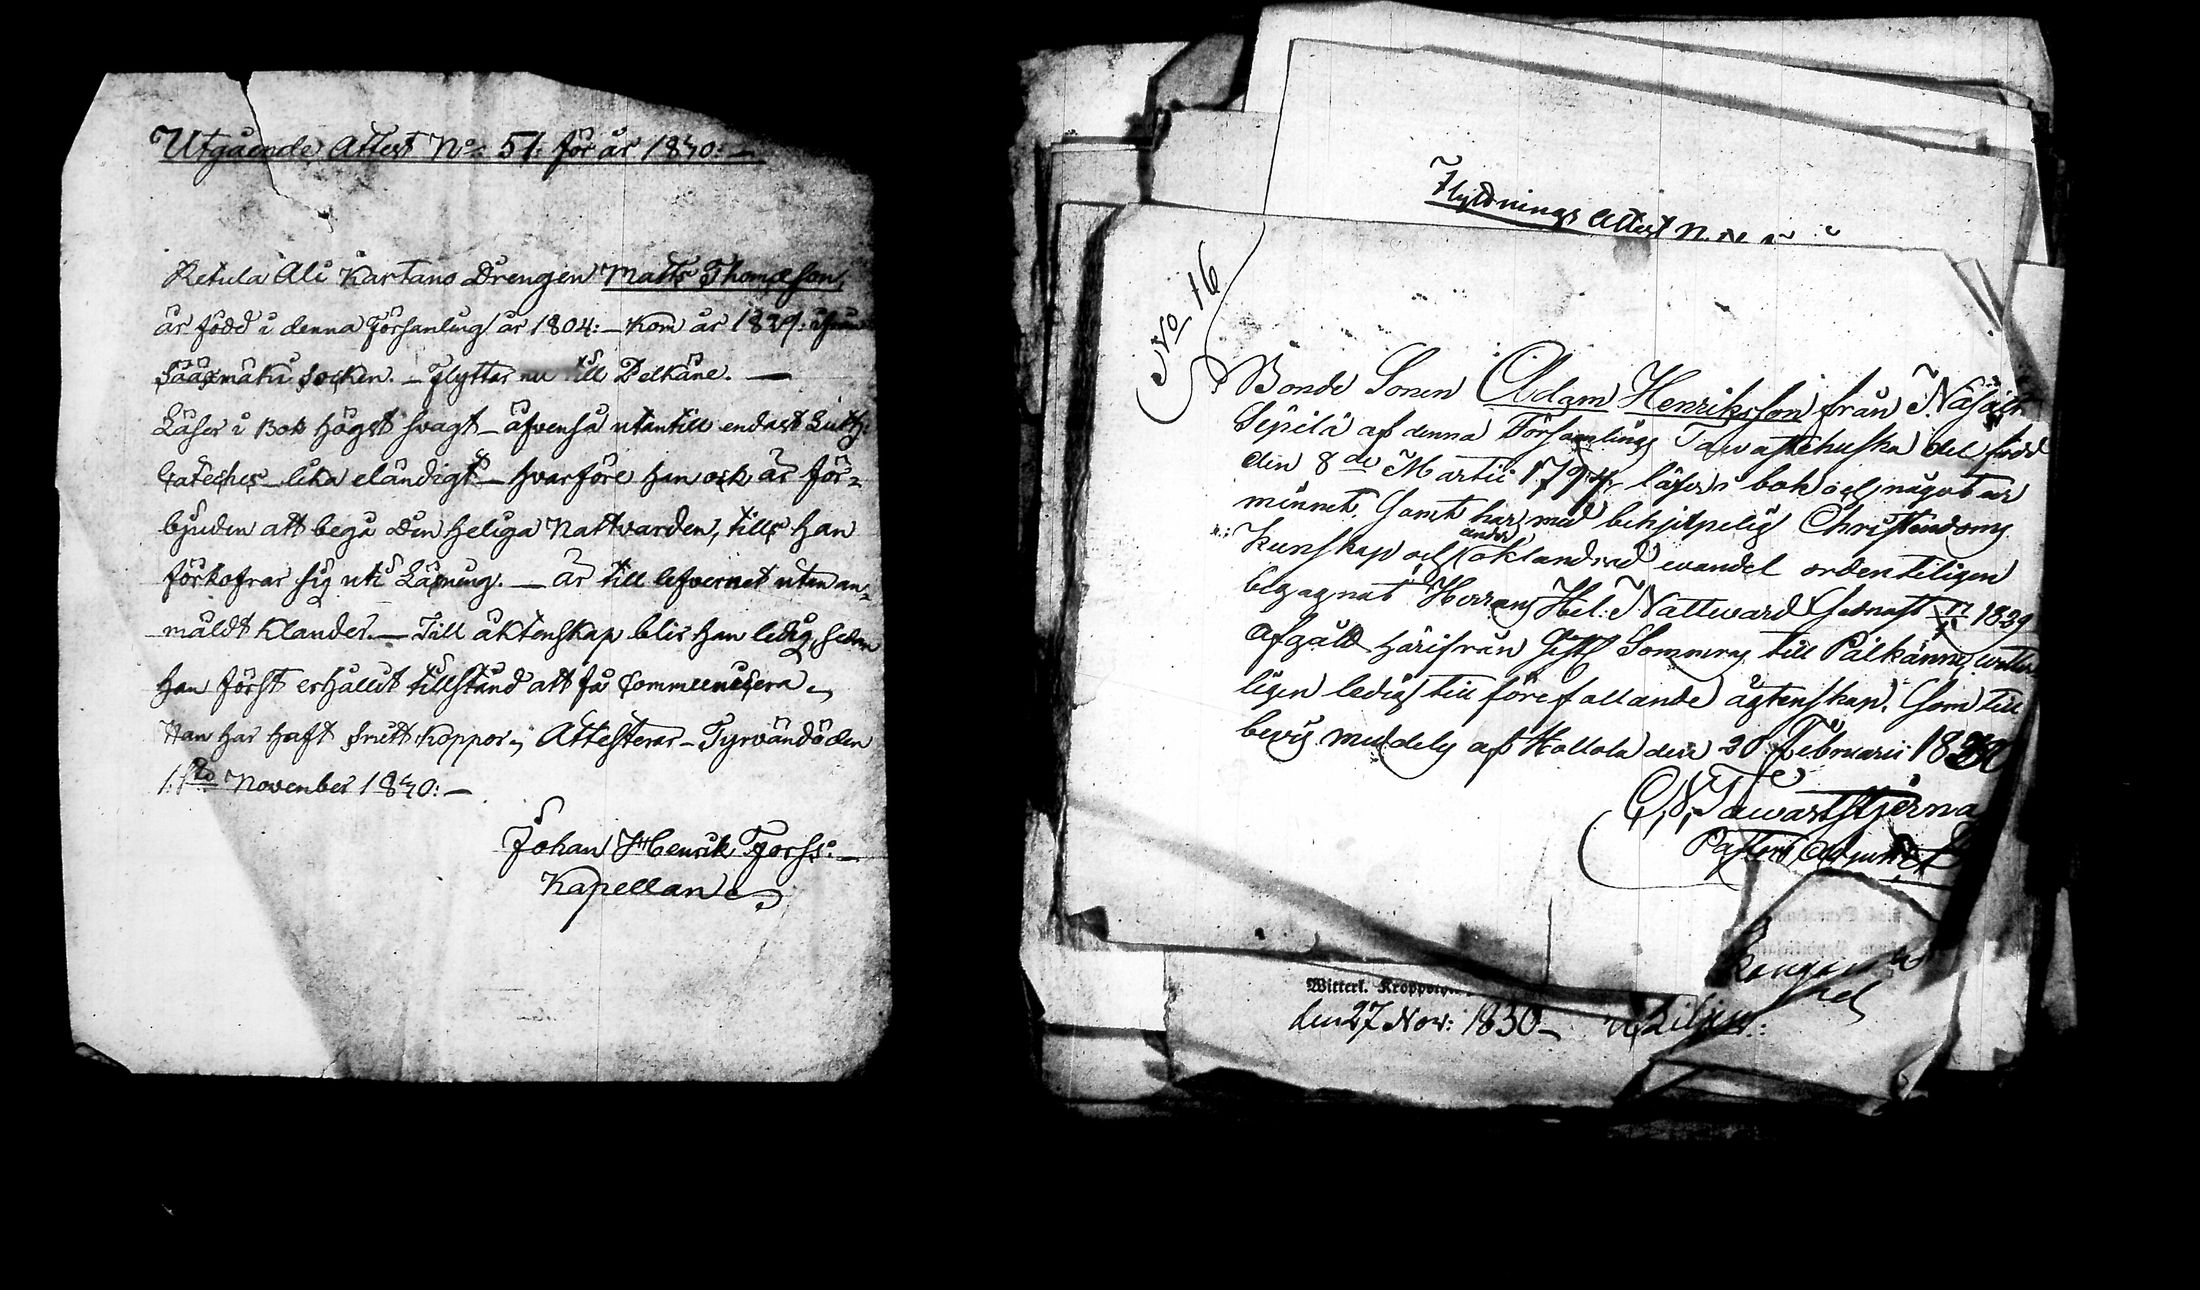 Utgående Attest No: 51: för år 1840: —
Retula Ali Kartano Drengen Matts Thomæson,
är född i denna Församling år 1804: — Kom år 1839: ifrån
Sääxmäki Socken. — Flyttar nu till Pelkäne. —
Läser i Bok högst svagt — äfvenså utantill endast Luth:
Cateches — lika eländigt — hvarföre han ock är för=
bjuden att begå Den Heliga Nattvarden, tills han
förkofrar sig uti Läsning. — Är till lefvernet utan an=
mäldt klander. — Till äktenskap blir han ledig, sedan
han först erhållit tillstånd att få Communicera.
Han har haft Smittkoppor; Attesterar — Tyrvändö den
1:sta November 1840: —
Johan Henrik Forss: —
Kapellan
Flyttnings Attest N.
No 16
Bonde Sonen Adam Henriksson från
Sipilä af denna Församlings Tawastehuska del född
den 8de Martii 1794, läser i bok och något ur
minnet, samt har med behjelpelig Christendoms
Kunskap och oklandrad wandel ordenteligen
andr
begagnat Herrans Hel: Nattward senast 1829
Afgått härifrån sistl Sommar till Pälkänne,
ligen ledig till förefallande ägtenskap. Som till
bevis meddelas af Hollola den 20 Februarii 18
Tawaststjerna
Pastors Adjunkt
Witterl.
den 27 Nov: 1830 —